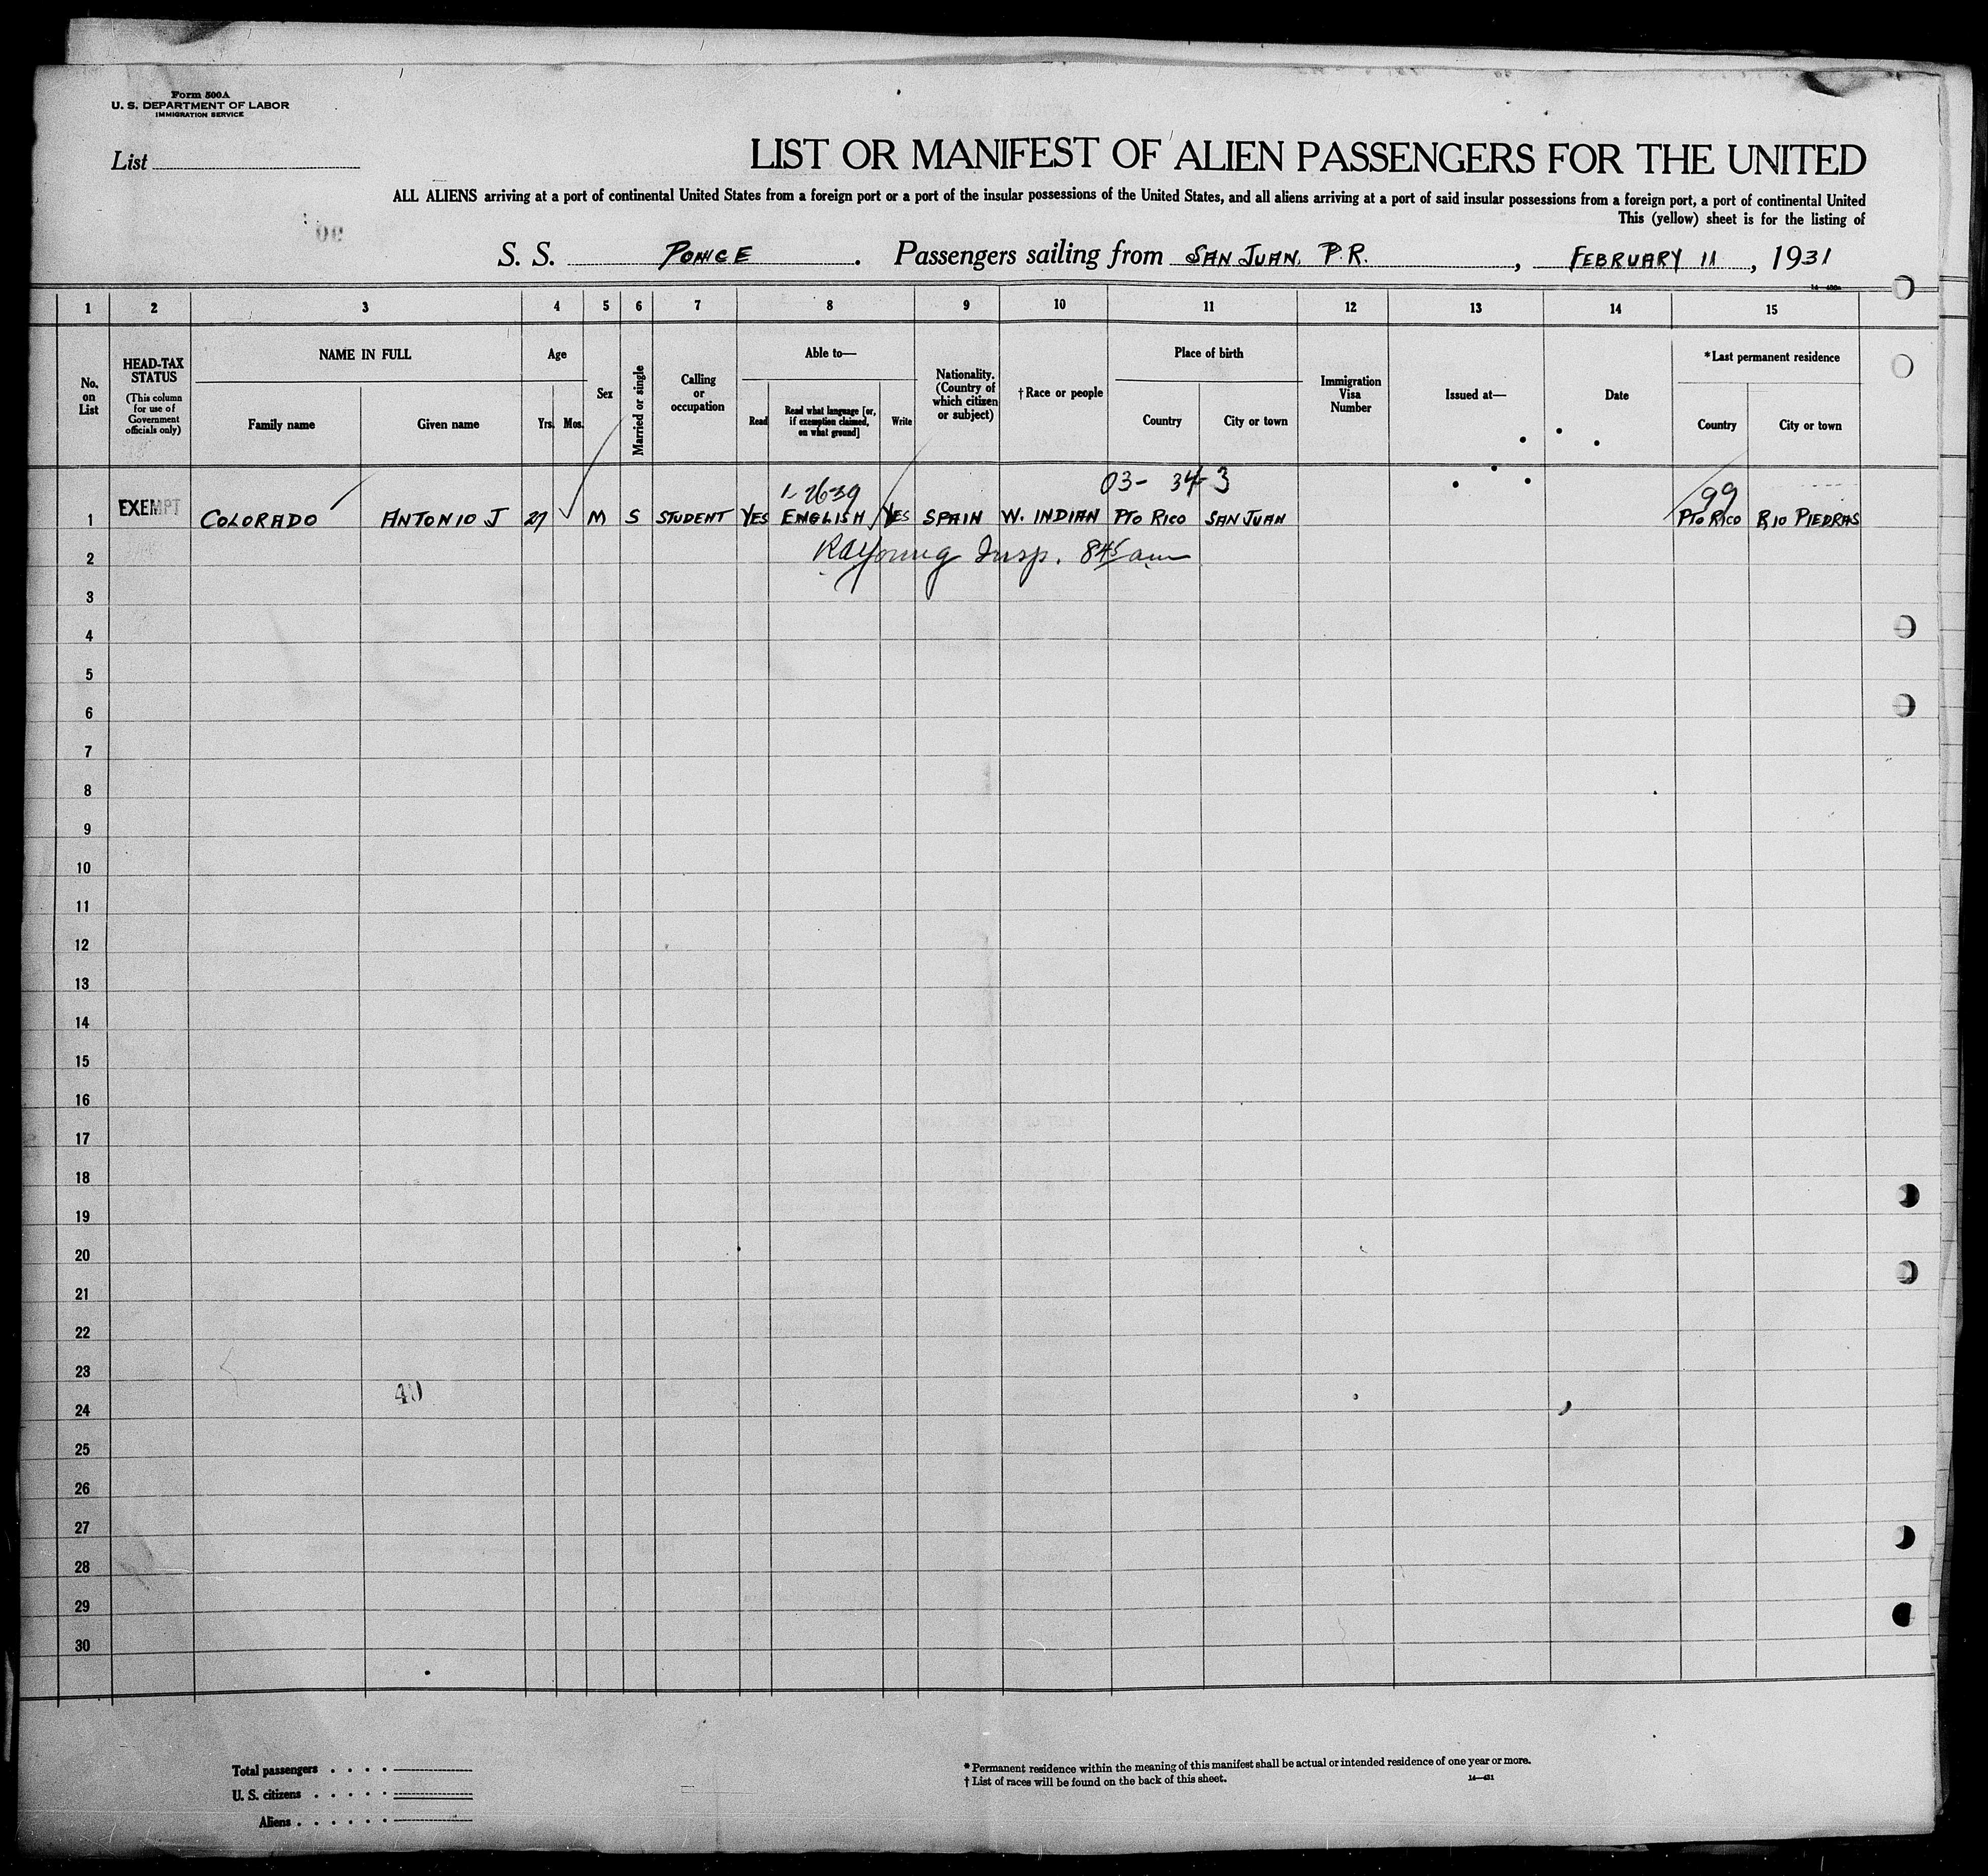 Form 500A
U. S. DEPARTMENT OF LABOR
IMMIGRATION SERVICE
List
LIST OR MANIFEST OF ALIEN PASSENGERS FOR THE UNITED
ALL ALIENS arriving at a port of continental United States from a foreign port or a port of the insular possessions of the United States, and all aliens arriving at a port of said insular possessions from a foreign port, a port of continental United
This (yellow) sheet is for the listing of
S. S. PONCE . Passengers sailing from SAN JUAN, P.R. , FEBRUARY 11 , 1931
1 2 3 4 5 6 7 8 9 10 11 12 13 14 15
No. on List
HEAD-TAX STATUS
(This column for use of Government officials only)
NAME IN FULL
Family name
Given name
Age
Yrs.
Mos.
Sex
Married or single
Calling or occupation
Able to—
Read
Read what language [or, if exemption claimed, on what ground]
Write
Nationality. (Country of which citizen or subject)
† Race or people
Place of birth
Country
City or town
Immigration Visa Number
Issued at—
Date
* Last permanent residence
Country
City or town
1-2639 03- 34-3 99
1 EXEMPT COLORADO ANTONIO J 27 M S STUDENT YES ENGLISH YES SPAIN W. INDIAN PTO RICO SAN JUAN PTO RICO RIO PIEDRAS
2 Young Insp. 845 am
3
4
5
6
7
8
9
10
11
12
13
14
15
16
17
18
19
20
21
22
23
40
24
25
26
27
28
29
30
Total passengers . . . .
U. S. citizens . . . . .
Aliens . . . . . .
* Permanent residence within the meaning of this manifest shall be actual or intended residence of one year or more.
† List of races will be found on the back of this sheet.
14—431